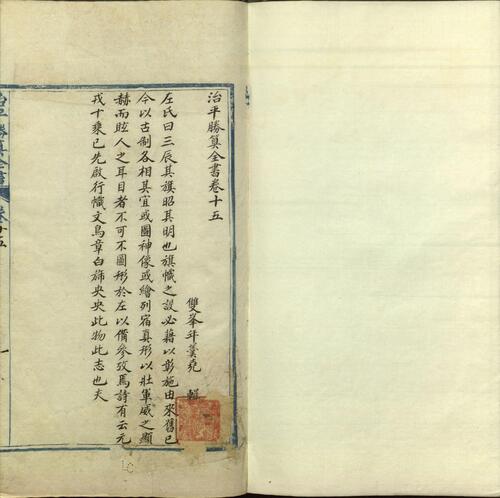 治平勝算全書卷十五
雙峯年羹堯 輯
左氏曰三辰其旗昭其明也旗幟之設必藉以彰施由來舊已
今以古制各相其宜或圖神像或繪列宿真形以壯軍威之顯
赫而眩人之耳目者不可不圖形於左以備參攷焉詩有云元
戎十乘已先啟行幟文鳥章白旆央央此物此志也夫
治平勝算全書
卷十五
一